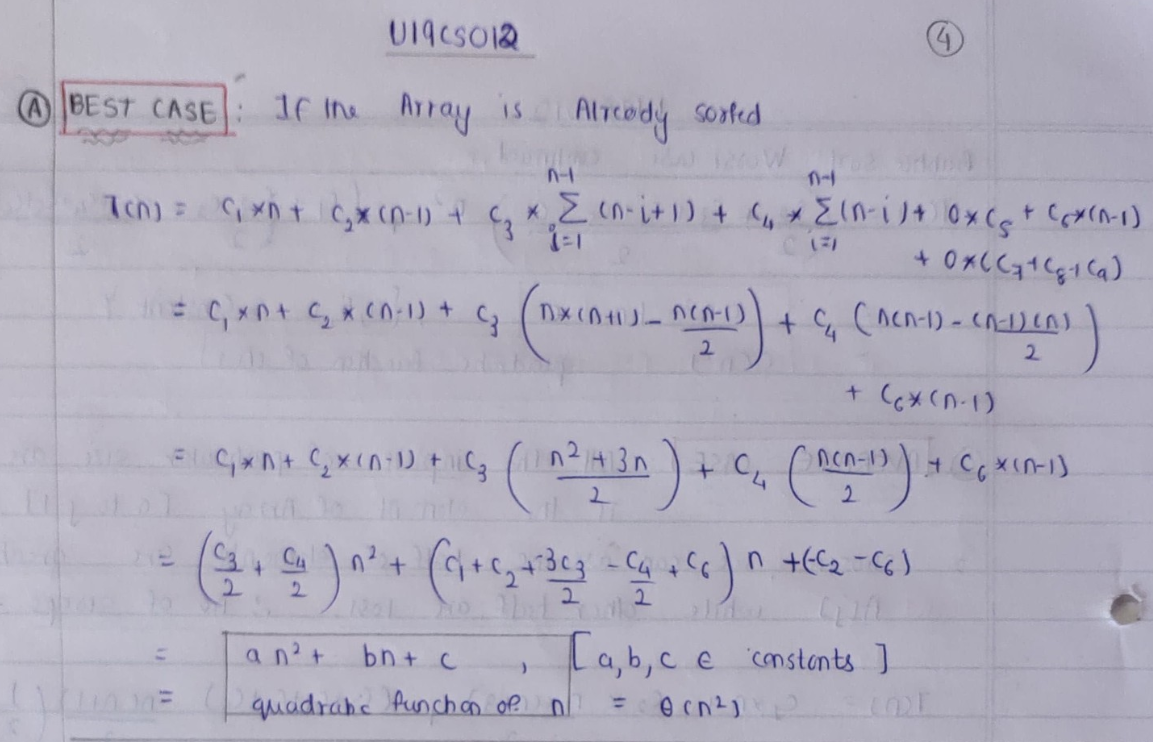 U19CS012
④
Ⓐ BEST CASE : If the Array is Already sorted
T(n) = C₁×n + C₂×(n-1) + C₃ × Σ_{i=1}^{n-1} (n-i+1) + C₄ × Σ_{i=1}^{n-1} (n-i) + 0×C₅ + C₆×(n-1)
+ 0×(C₇+C₈+C₉)
= C₁×n + C₂×(n-1) + C₃ (n×(n+1) - n(n-1)/2) + C₄ (n(n-1) - (n-1)(n)/2)
+ C₆×(n-1)
= C₁×n + C₂×(n-1) + C₃ ((n²+3n)/2) + C₄ (n(n-1)/2) + C₆×(n-1)
= (C₃/2 + C₄/2) n² + (C₁+C₂+3C₃/2 - C₄/2 + C₆) n + (-C₂-C₆)
= an² + bn + c , [a,b,c ∈ constants]
= quadratic function of n = θ(n²)